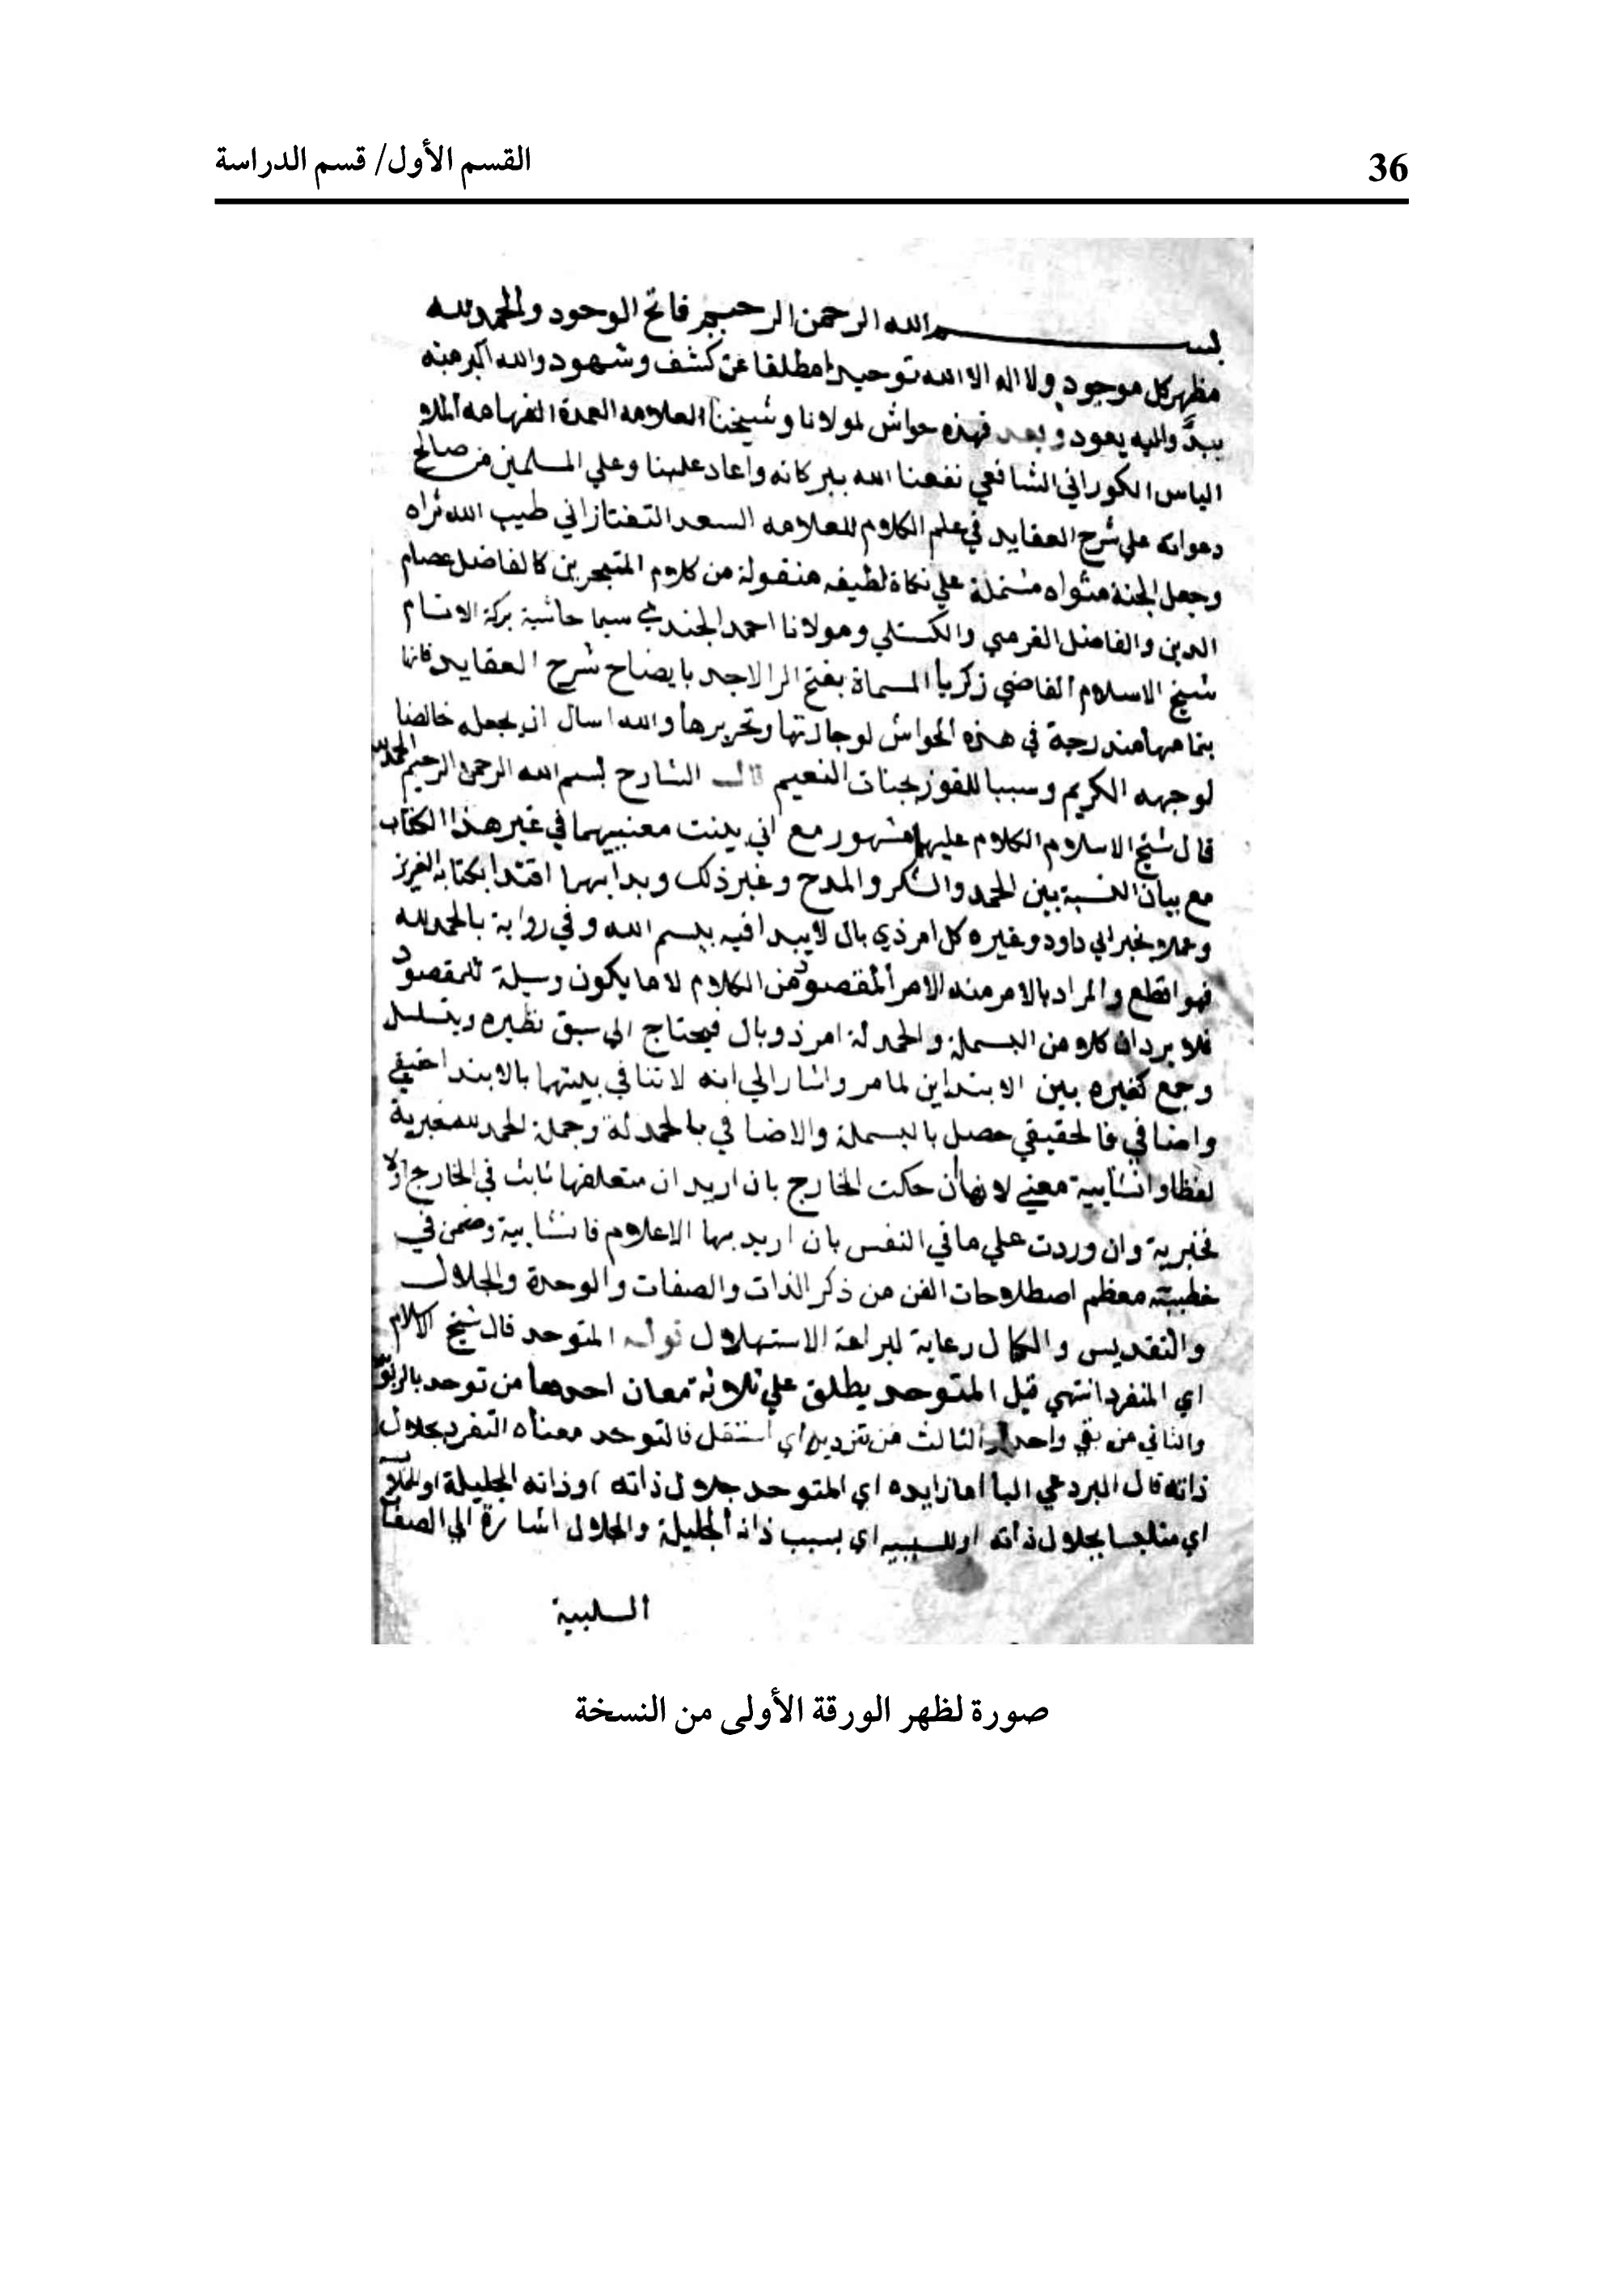 36
القسم الأول/ قسم الدراسة
بسم الله الرحمن الرحيم فاتح الوجود والحمد لله
مظهر كل موجود ولا اله الا الله توحيدا مطلقا عن كشف وشهود والله اكبر منه
يبدؤ واليه يعود وبعد فهذه حواش لمولانا وشيخنا العلامه العمدة الفهامه الملا
الياس الكوراني الشافعي نفعنا الله ببركاته واعاد علينا وعلي المسلمين من صالح
دعواته علي شرح العقايد في علم الكلام للعلامه السعد التفتازاني طيب الله ثراه
وجعل الجنة مثواه مشتملة علي نكاة لطيفه منقولة من كلام المتبحرين كالفاضل عصام
الدين والفاضل القرمي والكستلي ومولانا احمد الجندي سيما حاشية بركة الانام
شيخ الاسلام القاضي زكريا المسماة بفتح الاله الماجد بايضاح شرح العقايد فانها
بتمامها مندرجة في هذه الحواش لوجازتها وتحريرها والله اسال ان يجعله خالصا
لوجهه الكريم وسببا للفوز بجنات النعيم قال الشارح بسم الله الرحمن الرحيم الحمد لله
قال شيخ الاسلام الكلام عليهما مشهور مع اني بينت معنييهما في غير هذا الكتاب
مع بيان النسبة بين الحمد والشكر والمدح وغير ذلك وبدا بهما اقتدا بكتابه العزيز
وعملا بخبر ابي داود وغيره كل امر ذي بال لا يبدا فيه ببسم الله وفي رواية بالحمد لله
فهو اقطع والمراد بالامر منه الامر المقصود من الكلام لا ما يكون وسيلة للمقصود
فلا يرد ان كلا من البسملة والحمدلة امر ذو بال فيحتاج الي سبق نظيره ويتسلسل
وجمع كغيره بين الابتداين لما مر واشار الي انه لا تنافي بينهما بالابتدا حقيقي
واضافي فالحقيقي حصل بالبسملة والاضافي بالحمدلة وجملة الحمد لله خبرية
لفظا وانشايية معني لانها ان حكت الخارج بان اريد ان متعلقها ثابت في الخارج اولا
فخبرية وان وردت علي ما في النفس بان اريد بها الاعلام فانشايية وضمن في
خطبته معظم اصطلاحات الفن من ذكر الذات والصفات والوحدة والجلال
والتقديس والكمال رعاية لبراعة الاستهلال قوله المتوحد قال شيخ الاسلام
اي المنفرد انتهي قيل المتوحد يطلق علي ثلاثة معان احدها من توحد بالربو
والثاني من بقي واحدا والثالث من اي استقل فالتوحد معناه التفرد بجلال
ذاته قال البردعي البا اما زايده اي المتوحد جلال ذاته او ذاته الجليلة او للملا
اي متلبسا بجلال ذاته او للسببيه اي بسبب ذاته الجليلة والجلال اشارة الي الصفات
السلبية
صورة لظهر الورقة الأولى من النسخة